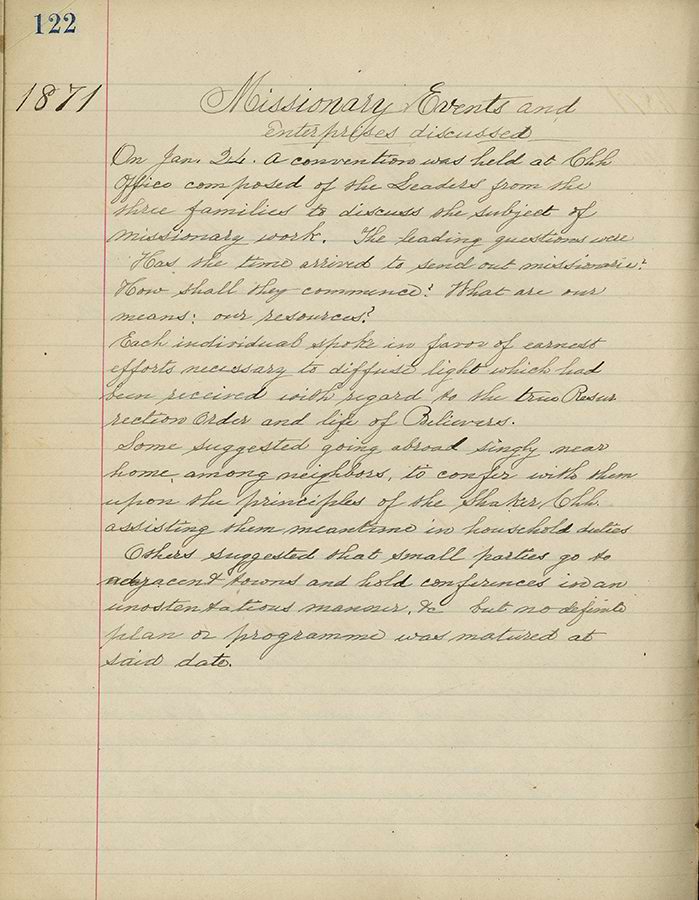 122
1871
Missionary Events and
Enterprises discussed
On Jan. 24. A convention was held at Chh
Office composed of the Leaders from the
three families to discuss the subject of
missionary work. The leading questions were
Has the time arrived to send out missionaries?
How shall they commence? What are our
means: our resources?
Each individual spoke in favor of earnest
efforts necessary to diffuse light which had
been received with regard to the true Resur
rection Order and life of Believers.
Some suggested going abroad singly near
home among neighbors, to confer with them
upon the principles of the Shaker Chh.
assisting them meantime in household duties
Others suggested that small parties go to
adjacent towns and hold conferences in an
unostentatious manner, &c but no definite
plan or programme was matured at
said date.